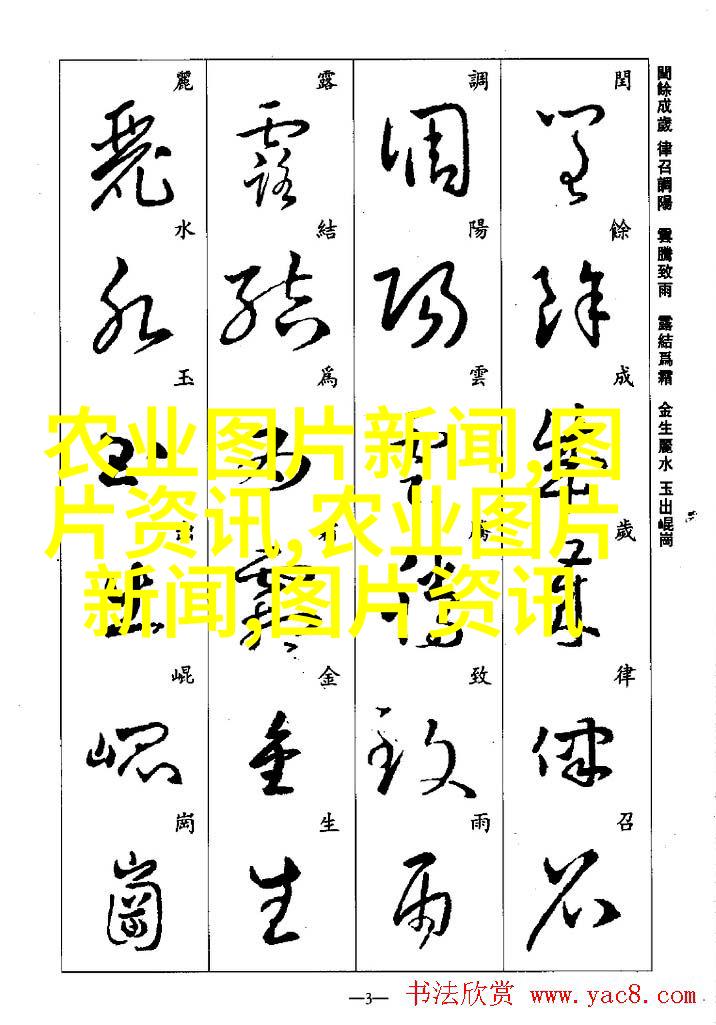 閏餘成歲 律召調陽 雲騰致雨 露結爲霜 金生麗水 玉出崐崗
閏
餘
成
歲
律
召
調
陽
雲
騰
致
雨
露
結
爲
霜
金
生
麗
水
玉
出
崐
崗
农业图片新闻,图
片资讯,农业图片
新闻,图片资讯
—3—
书法欣赏 www.yac8.com